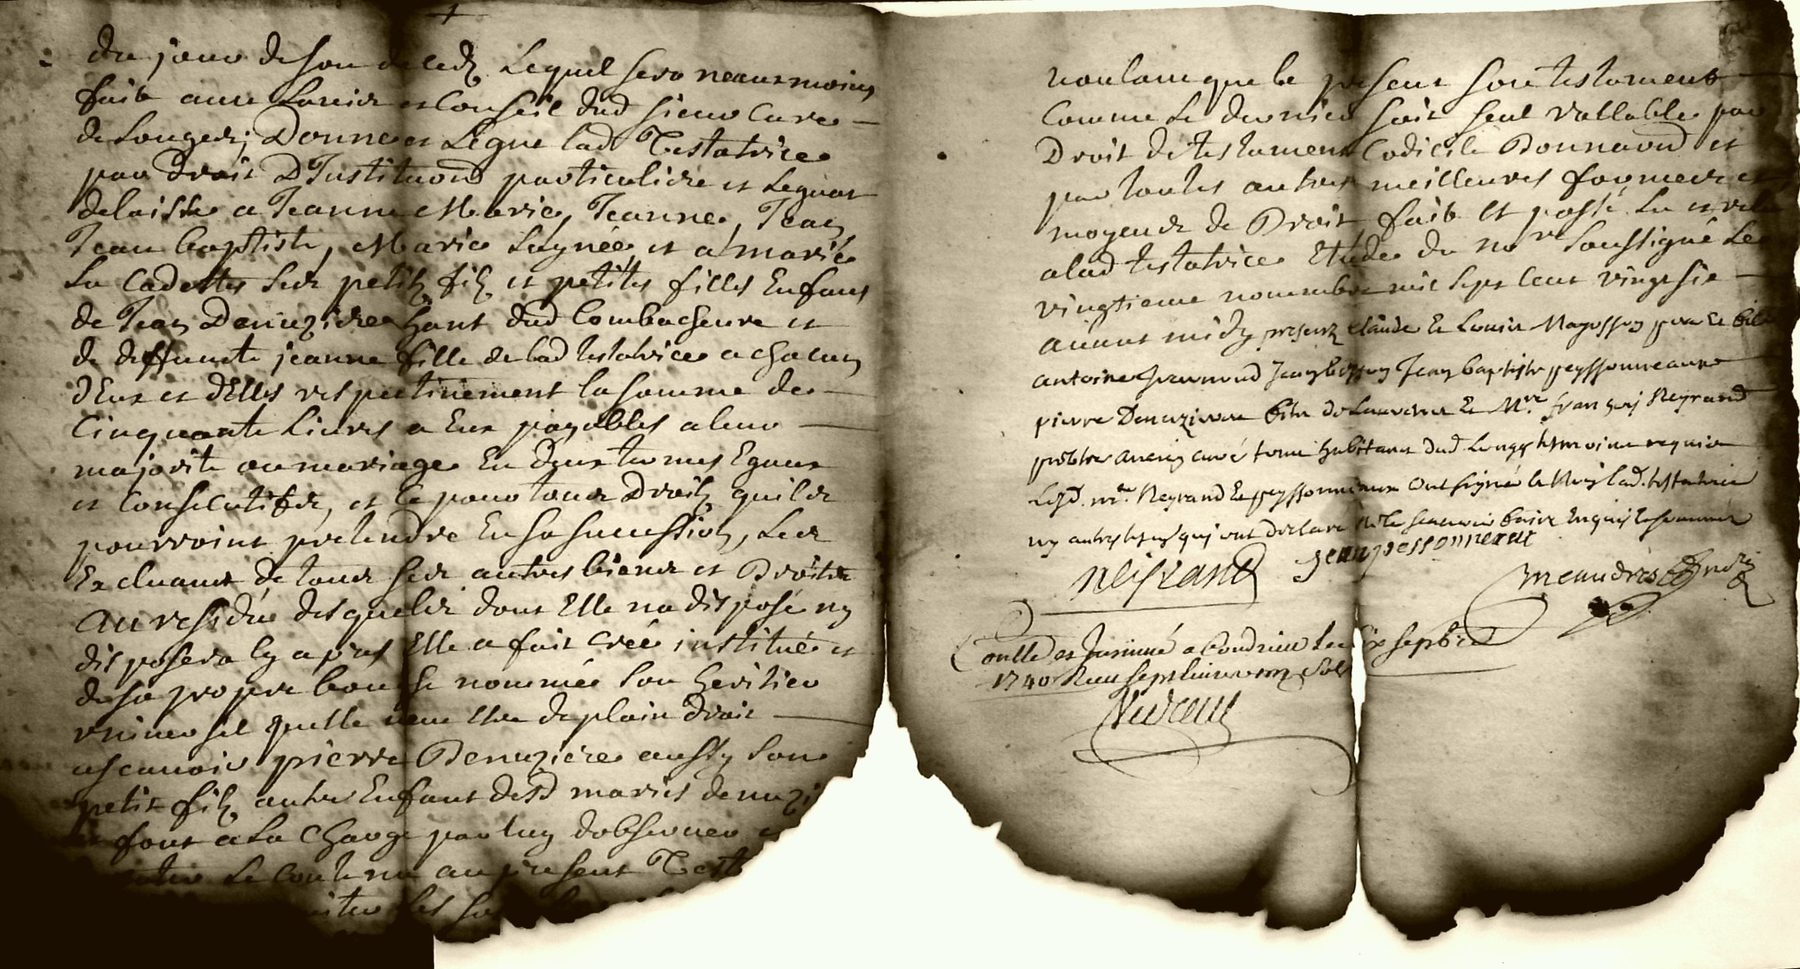 du jour de son deced. Lequel sera neanmoins
fait avec Lavis et Conseil dud sieur Cure
de Longes; Donne et Legue lad Testatrice
par droit D'Institution particuliere et Legat
delaisse a Jeanne Marie, Jeanne, Jean
Jean baptiste, Marie Laynée et a marie
La Cadette ses petits fils et petites filles Enfans
de Jean Denuziere hant dud Combacheure et
de deffuncte jeanne fille de lad testatrice a chacun
d'Eux et d'Elles respectivement la somme de
Cinquante Livres a Eux payables a leur
majorité ou mariage En deux termes Egaux
et Consecutifs, et ce pour tous Droits quils
pourroint pretendre En sa succession, Les
Excluant de tous ses autres biens et Droits
Au residu desquels dont Elle na disposé ny
disposera Cy apres Elle a fait créé institué et
de sa propre bouche nommé Son heritier
universel quelle veut estre de plain droit
ascavoir pierre Denuziere aussy Son
petit fils autre Enfant desd mariés denuzi
font a La Charge par luy d'observer
Le Contenu au present Test
voulant que le present son testament
Comme Le dernier soit seul vallable par
Droit de testament Codicile Donnaon et
par toutes autres meilleures formes et
moyens de Droit fait et passé Lu et
a lad testatrice Etude du nore Soussigné Le
vingtieme novembre mil sept Cent vingt six
avant midy presens Claude et Louis Magosson pere et fils
antoine Jean baptiste peyssonneaux
pierre Denuziere et Mre françois Neyrand
prebtre ancien curé tous habitans dud Longes tesmoins requis
Lesd. mre Neyrand et peyssonneaux ont signé et Non lad. testatrice
ny autres tesms qui ont declaré ne le scavoir faire Enquis et sommés
neyrand jean pessonneaux
meaudres
Conllé et Insinué a Condrieu le six sepbre
1740 Receu sept livres sols